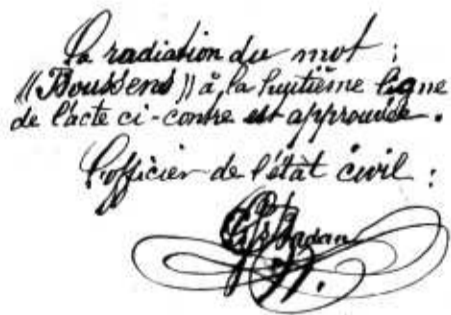 La radiation du mot :
"Boussens" à la huitième ligne
de l'acte ci-contre est approuvée.
L'officier de l'état civil :